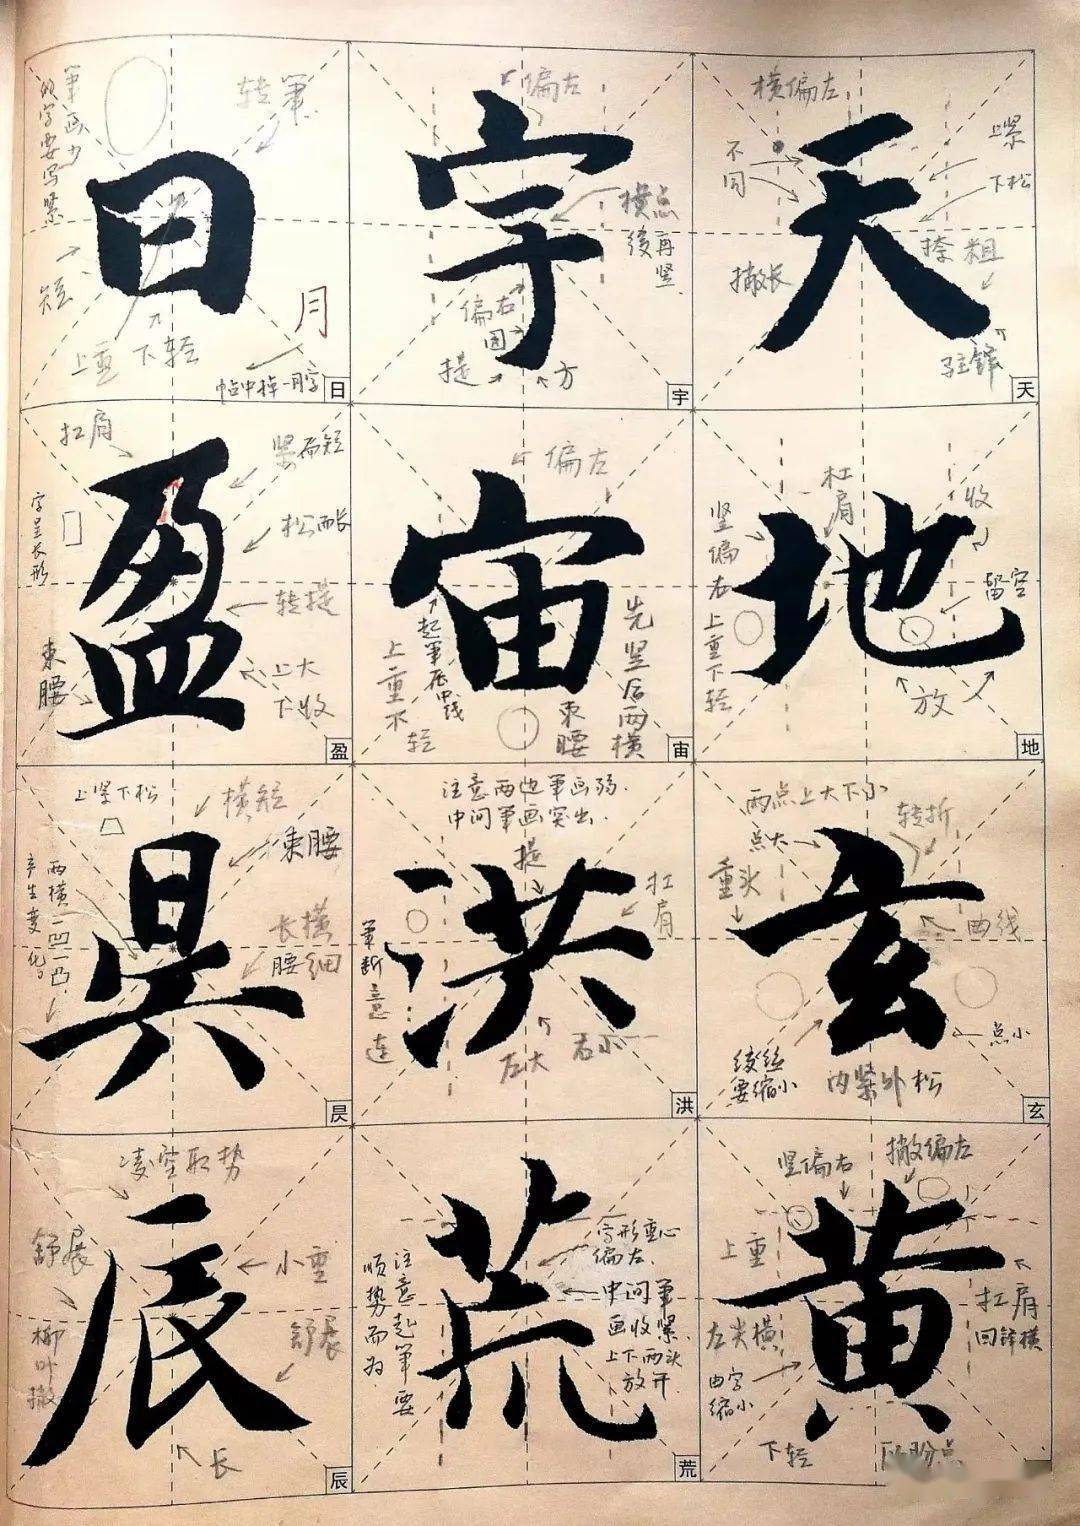 天
横偏左
不同
上紧
下松
撇长
捺粗
驻锋
天
地
杠肩
收
竖偏右上重下轻
留空
放
地
玄
两点上大下小
点大
转折
重头
曲线
点小
绞丝
要缩小
内紧外松
玄
黄
竖偏右
撇偏左
上重
杠肩
回锋横
左尖横
由字
缩小
下轻
宇
偏左
横点
后再竖
偏右
圆
提
方
宇
宙
偏左
起笔在中线
上重下轻
先竖后两横
束腰
宙
洪
注意两边笔画弱.
中间笔画突出.
提
杠肩
笔断意连
左大
右小
洪
荒
字形重心
偏左.
中间笔
画收紧.
上下两头
放开.
注意起笔要
顺势而为.
荒
日
笔画少
的字要写紧
转笔
短
上重下轻
月
帖中掉一月字
日
盈
扛肩
紧而短
松而长
字呈长形
转提
束腰
上大
下收
盈
昃
上紧下松
横短
束腰
两横一凹一凸.
产生变化.
长横
腰细
昃
辰
凌空取势
舒展
小重
柳叶撇
舒展
长
辰